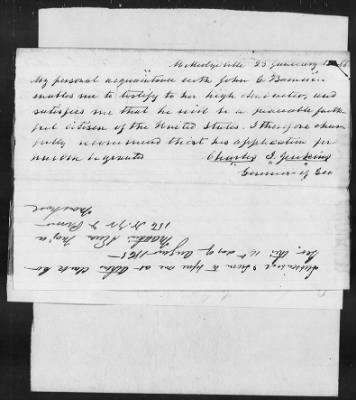 Milledgeville 25 January 1866
My personal acquaintance with John C
enables me to testify to his high character, and
satisfies me that he will be a peaceable faith
ful citizen of the United States. I therefore cheer
fully recommend that his application for
pardon be granted
Charles J. Jenkins
Governor of Geo
Subscribed & Sworn to before me at
this 16th day of August 1865